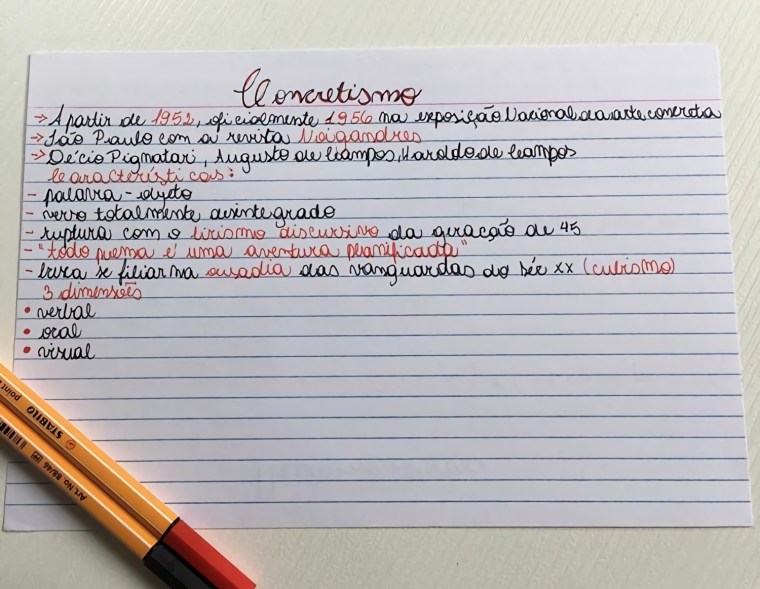 Concretismo
→ A partir de 1952, oficialmente 1956 na exposição Nacional da arte concreta
→ São Paulo com a revista Noigandres
→ Décio Pignatari, Augusto de Campos, Haroldo de Campos
Características:
- palavra-objeto
- verso totalmente desintegrado
- ruptura com o lirismo discursivo da geração de 45
- "todo poema é uma aventura planificada"
- busca se filiar na ousadia das vanguardas do séc XX (cubismo)
3 dimensões
• verbal
• oral
• visual
point
STABILO
Art. No. 88/46